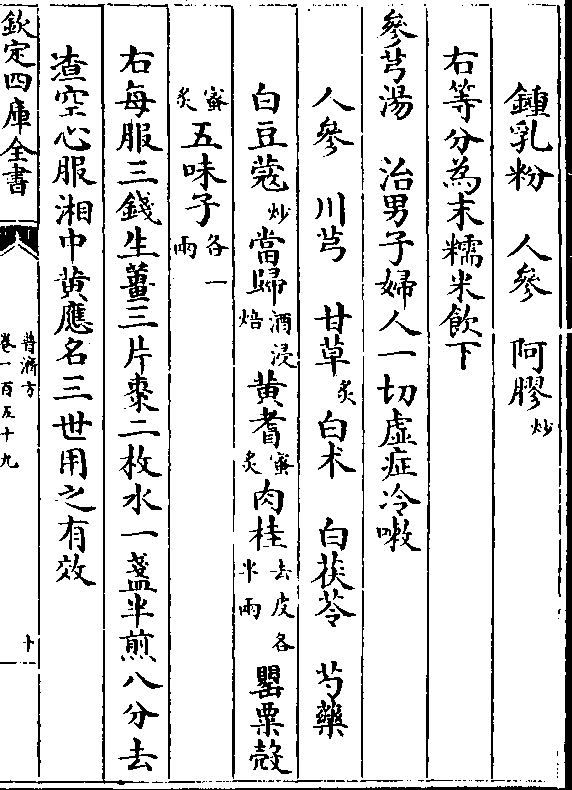 鍾乳粉　人參　阿膠炒
右等分為末糯米飲下
參芎湯　治男子婦人一切虛症冷嗽
人參　川芎　甘草炙白术　白茯苓　芍藥
白豆蔻炒當歸酒浸焙黄耆蜜炙肉桂去皮各半兩罌粟殼
蜜炙五味子各一兩
右每服三錢生薑三片棗二枚水一盞半煎八分去
渣空心服湘中黄應名三世用之有效
欽定四庫全書
普濟方
卷一百五十九